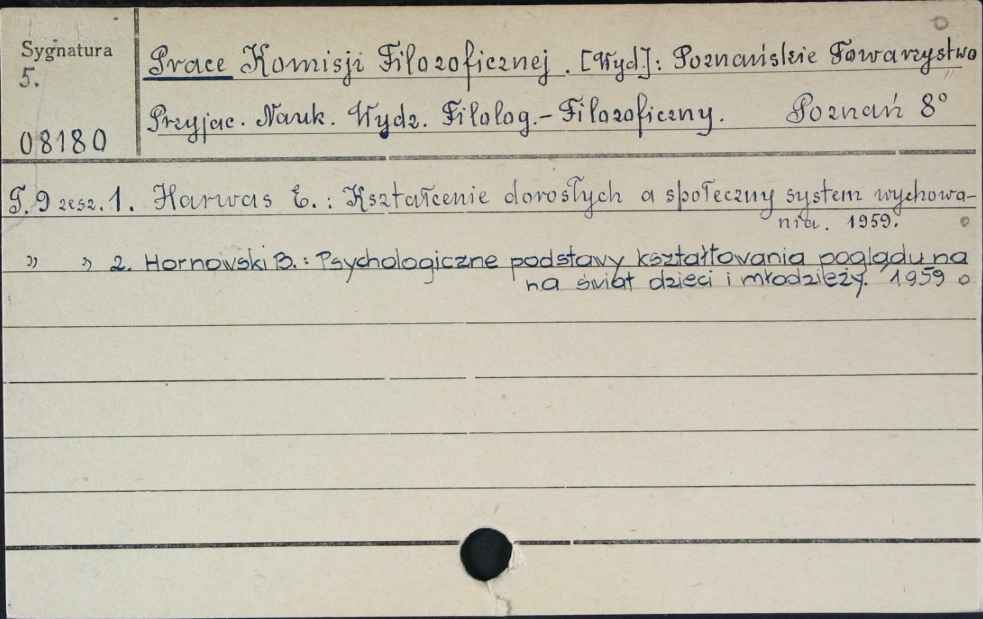 Sygnatura
5.
08180
Prace Komisji Filozoficznej. [Wyd]: Poznańskie Towarzystwo
Przyjac. Nauk. Wydz. Filolog.-Filozoficzny. Poznań 8°
T. 9 zesz. 1. Harwas E. : Kształcenie dorosłych a społeczny system wychowa-
nia. 1959.
" " 2. Hornowski B. : Psychologiczne podstawy kształtowania poglądu na
na świat dzieci i młodzieży. 1959